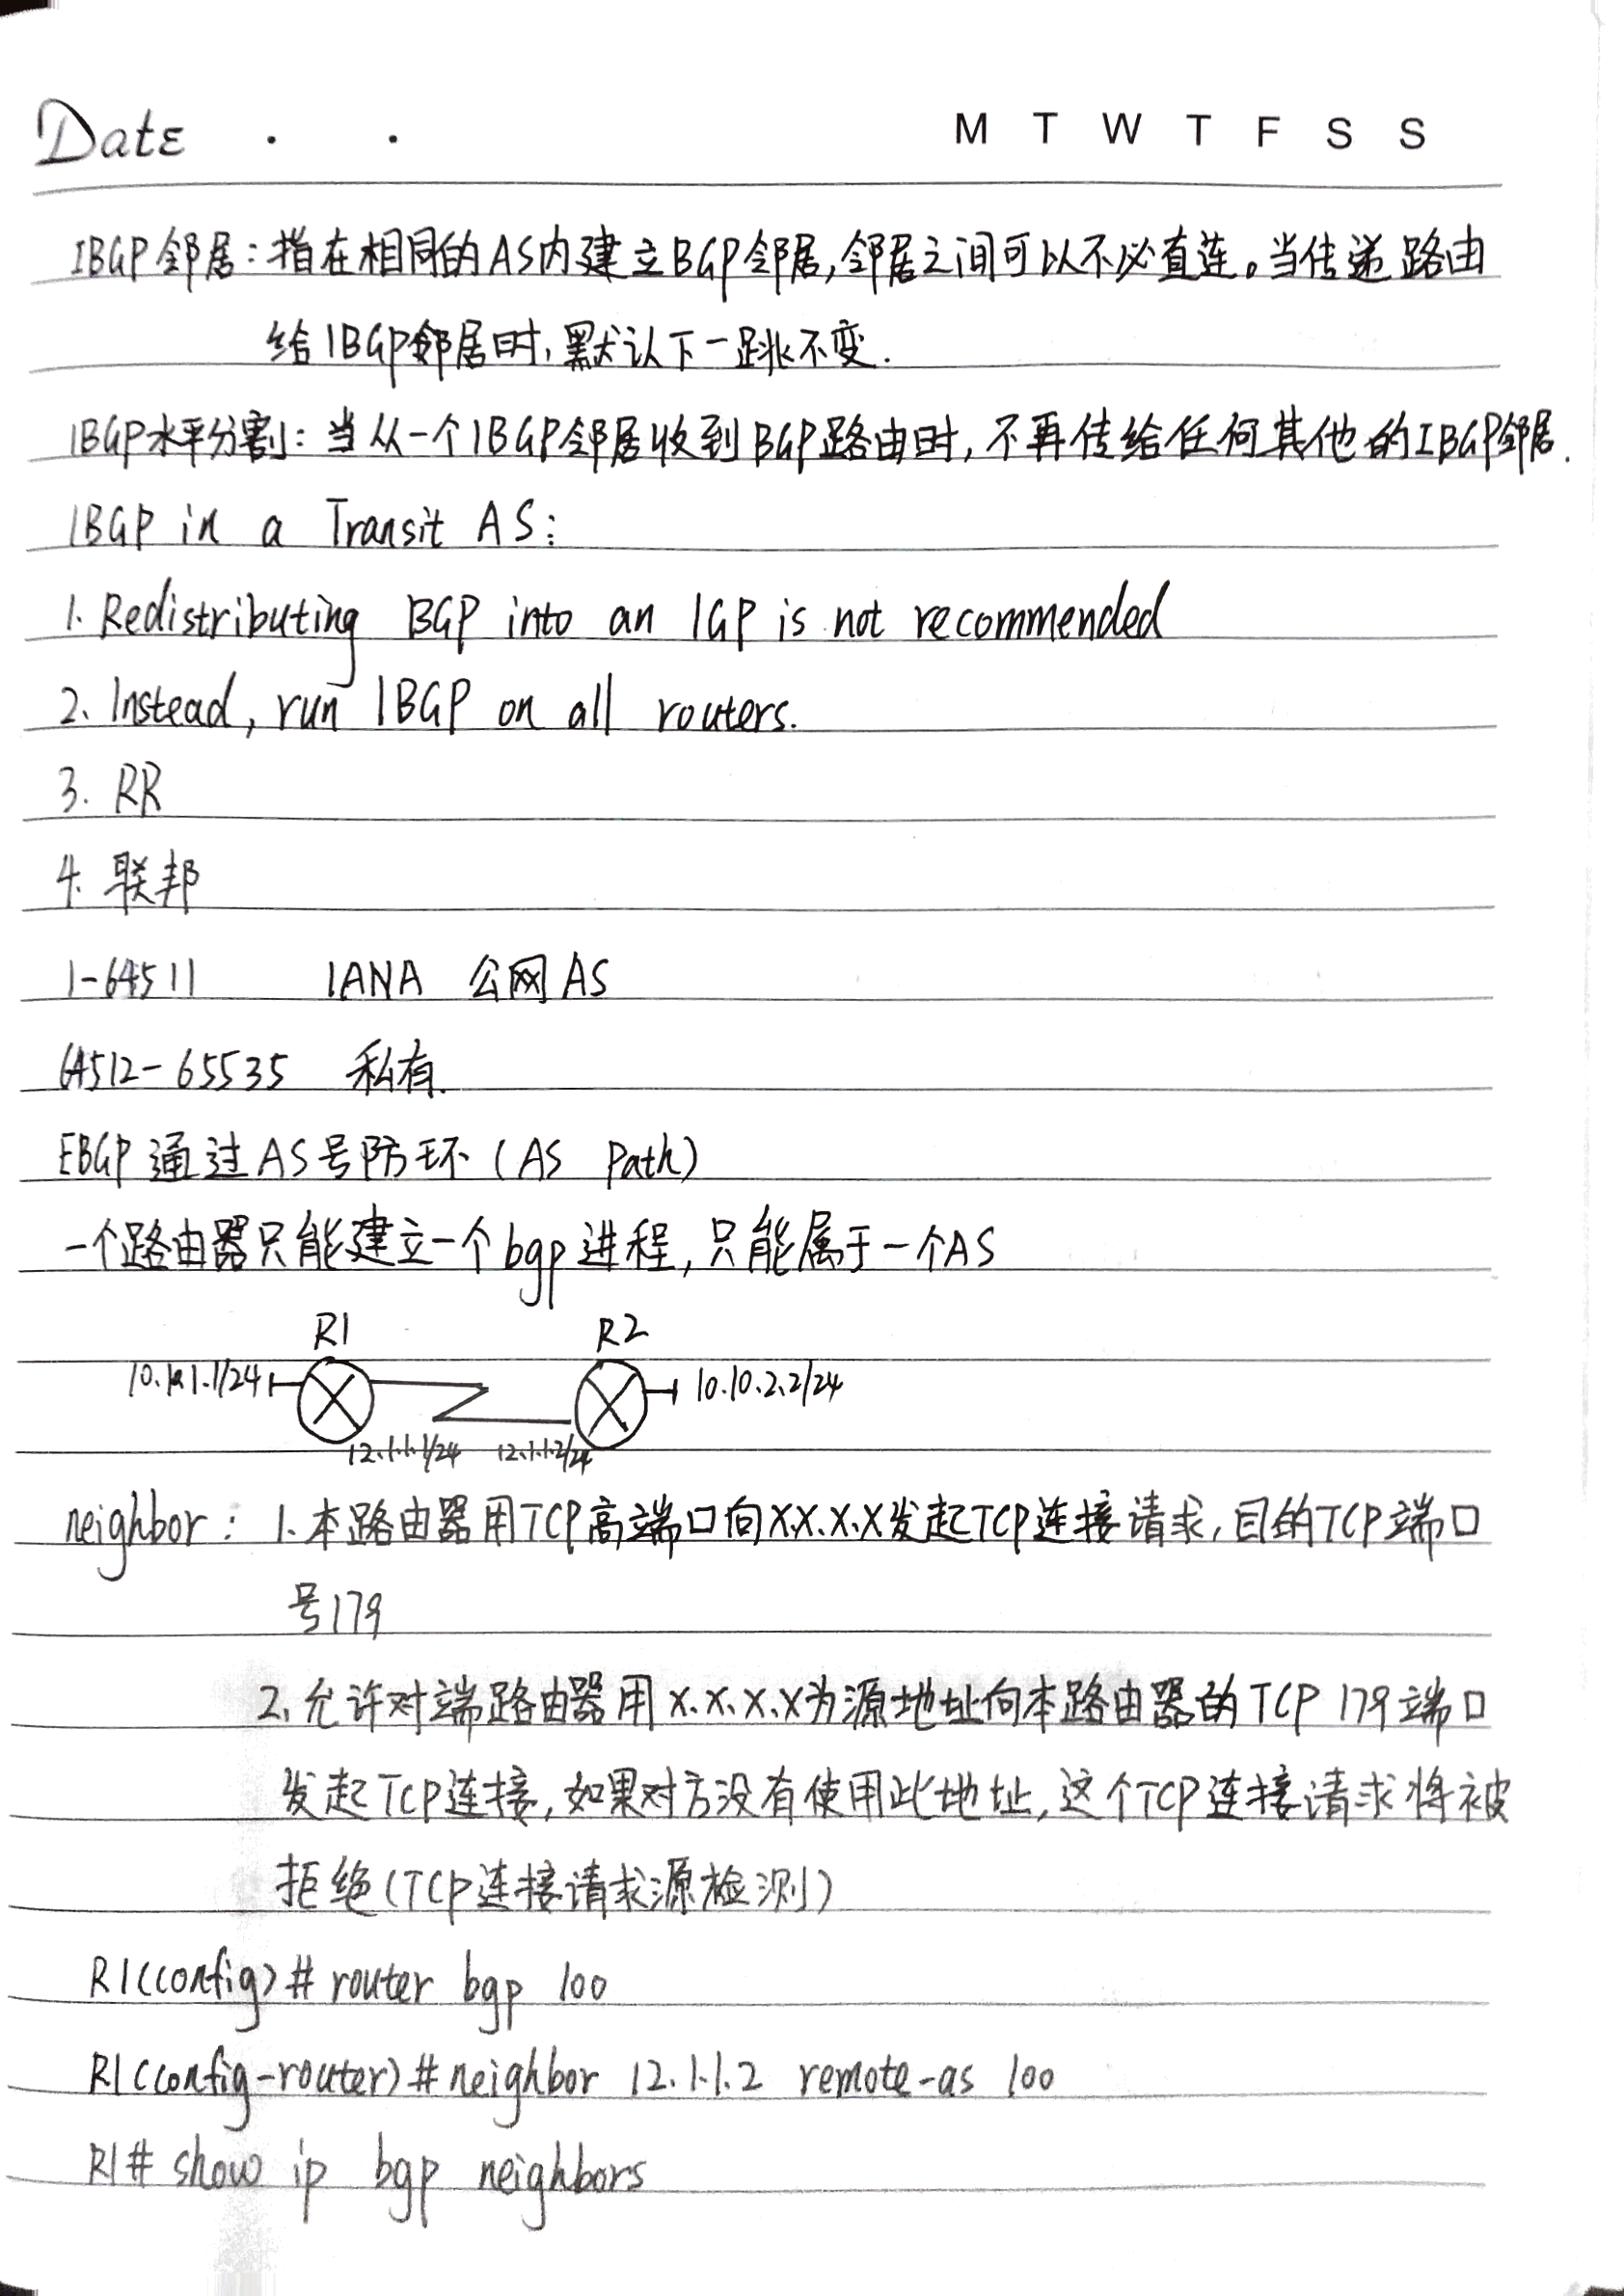 Date . . M T W T F S S
IBGP邻居:指在相同的AS内建立BGP邻居,邻居之间可以不必直连。当传递路由
给IBGP邻居时,默认下一跳不变.
IBGP水平分割:当从一个IBGP邻居收到BGP路由时,不再传给任何其他的IBGP邻居.
IBGP in a Transit AS:
1. Redistributing BGP into an IGP is not recommended
2. Instead, run IBGP on all routers.
3. RR
4. 联邦
1-64511 IANA 公网AS
64512-65535 私有.
EBGP通过AS号防环(AS Path)
一个路由器只能建立一个bgp进程,只能属于一个AS
R1 R2
10.10.1.1/24 10.10.2.2/24
12.1.1.1/24 12.1.1.2/24
neighbor: 1.本路由器用TCP高端口向X.X.X.X发起TCP连接请求,目的TCP端口
号179
2.允许对端路由器用X.X.X.X为源地址向本路由器的TCP 179端口
发起TCP连接,如果对方没有使用此地址,这个TCP连接请求将被
拒绝(TCP连接请求源检测)
R1(config)# router bgp 100
R1(config-router)# neighbor 12.1.1.2 remote-as 100
R1# show ip bgp neighbors